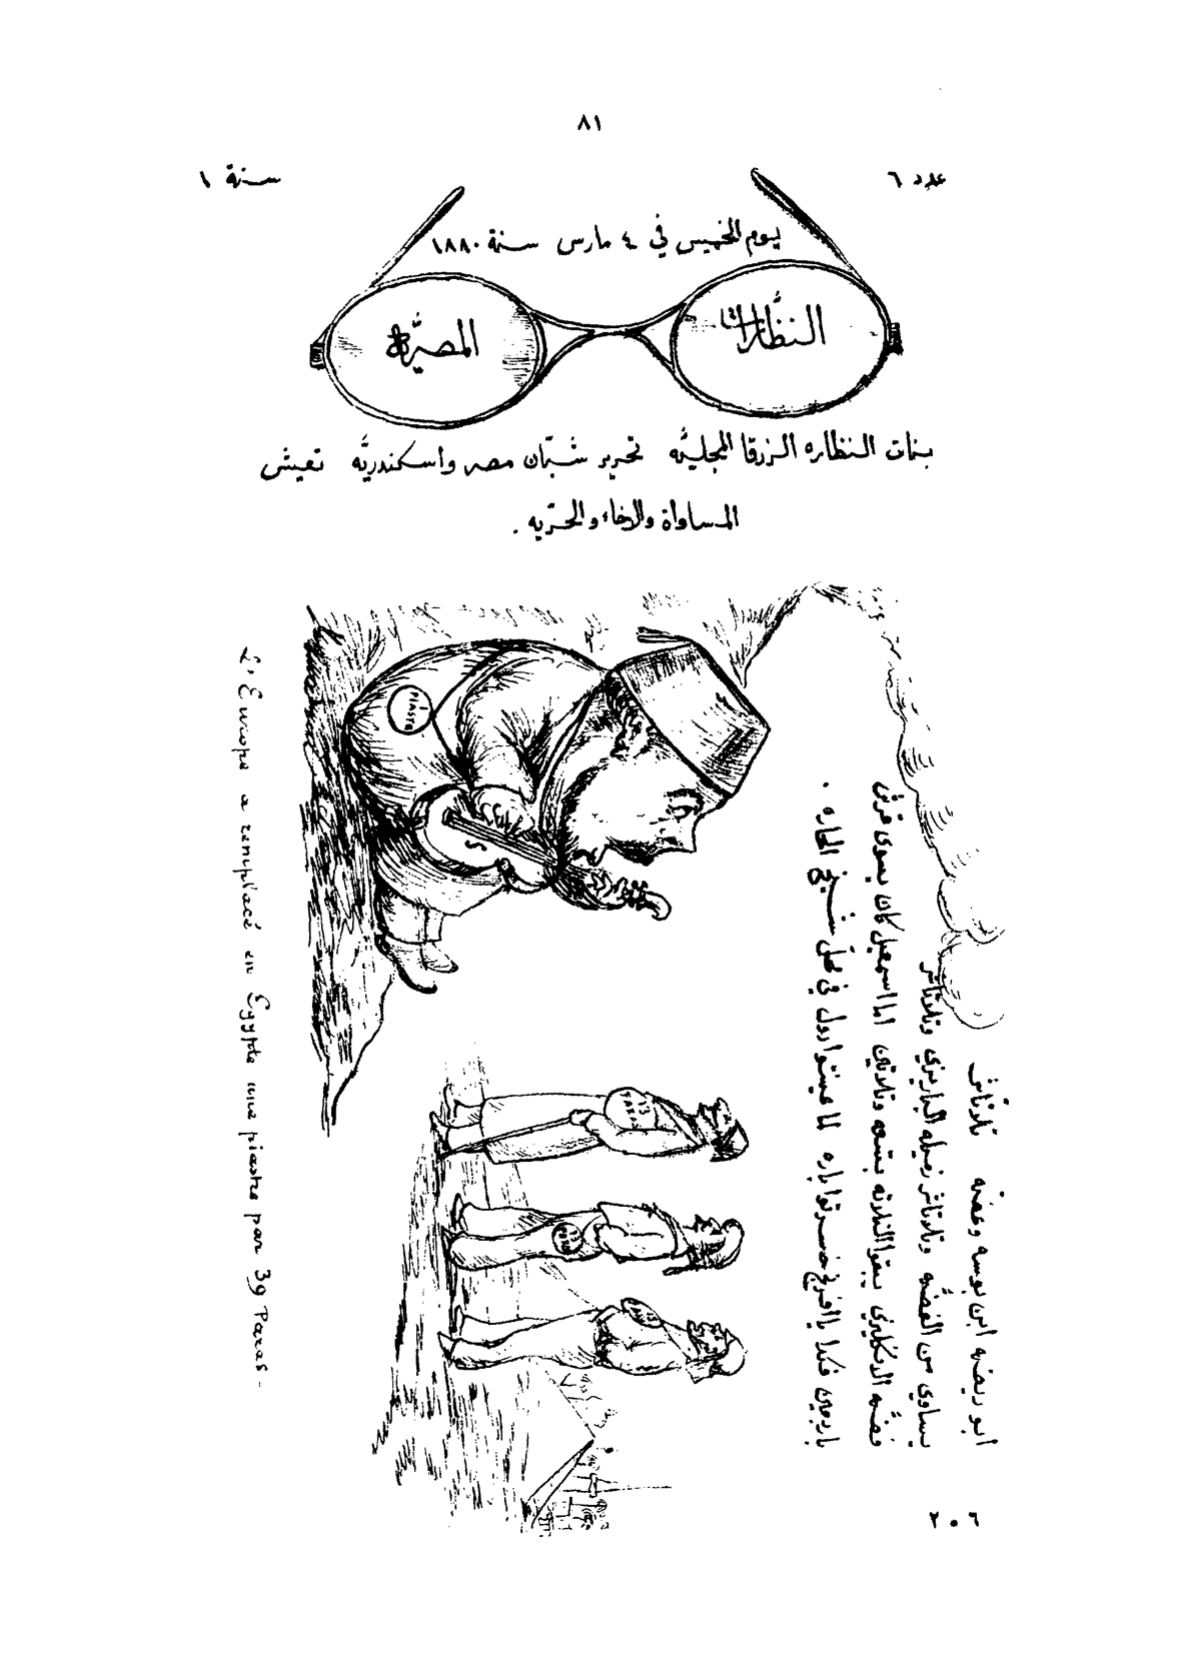 ٨١
عدد ٦
سنة ١
يوم الخميس في ٤ مارس سنة ١٨٨٠
النظارات
المصريّه
بنات النظاره الزرقا المجليّه تحرير شبّان مصر واسكندريّه تعيش
المساواة والاخاء والحرّيه .
ابو ريضه ابن بوسه وعضه تلاتاشر
يساوي من الفضّه وتلاتاشر زميله الباريزي وتلاتاشر
فضّه الانكليزي يبقوا التلاته بتسعه وتلاتين اما اسمعيل كان يسوى قرش
باربعين فكدا يا افرنج خسرتوا باره لما عينتوا دول في محل شيخ الحاره .
1 PIASTRE
13 PARA
13 PARA
L'Europe a remplacé en Egypte une piastre par 39 Paras -
٢٠٦